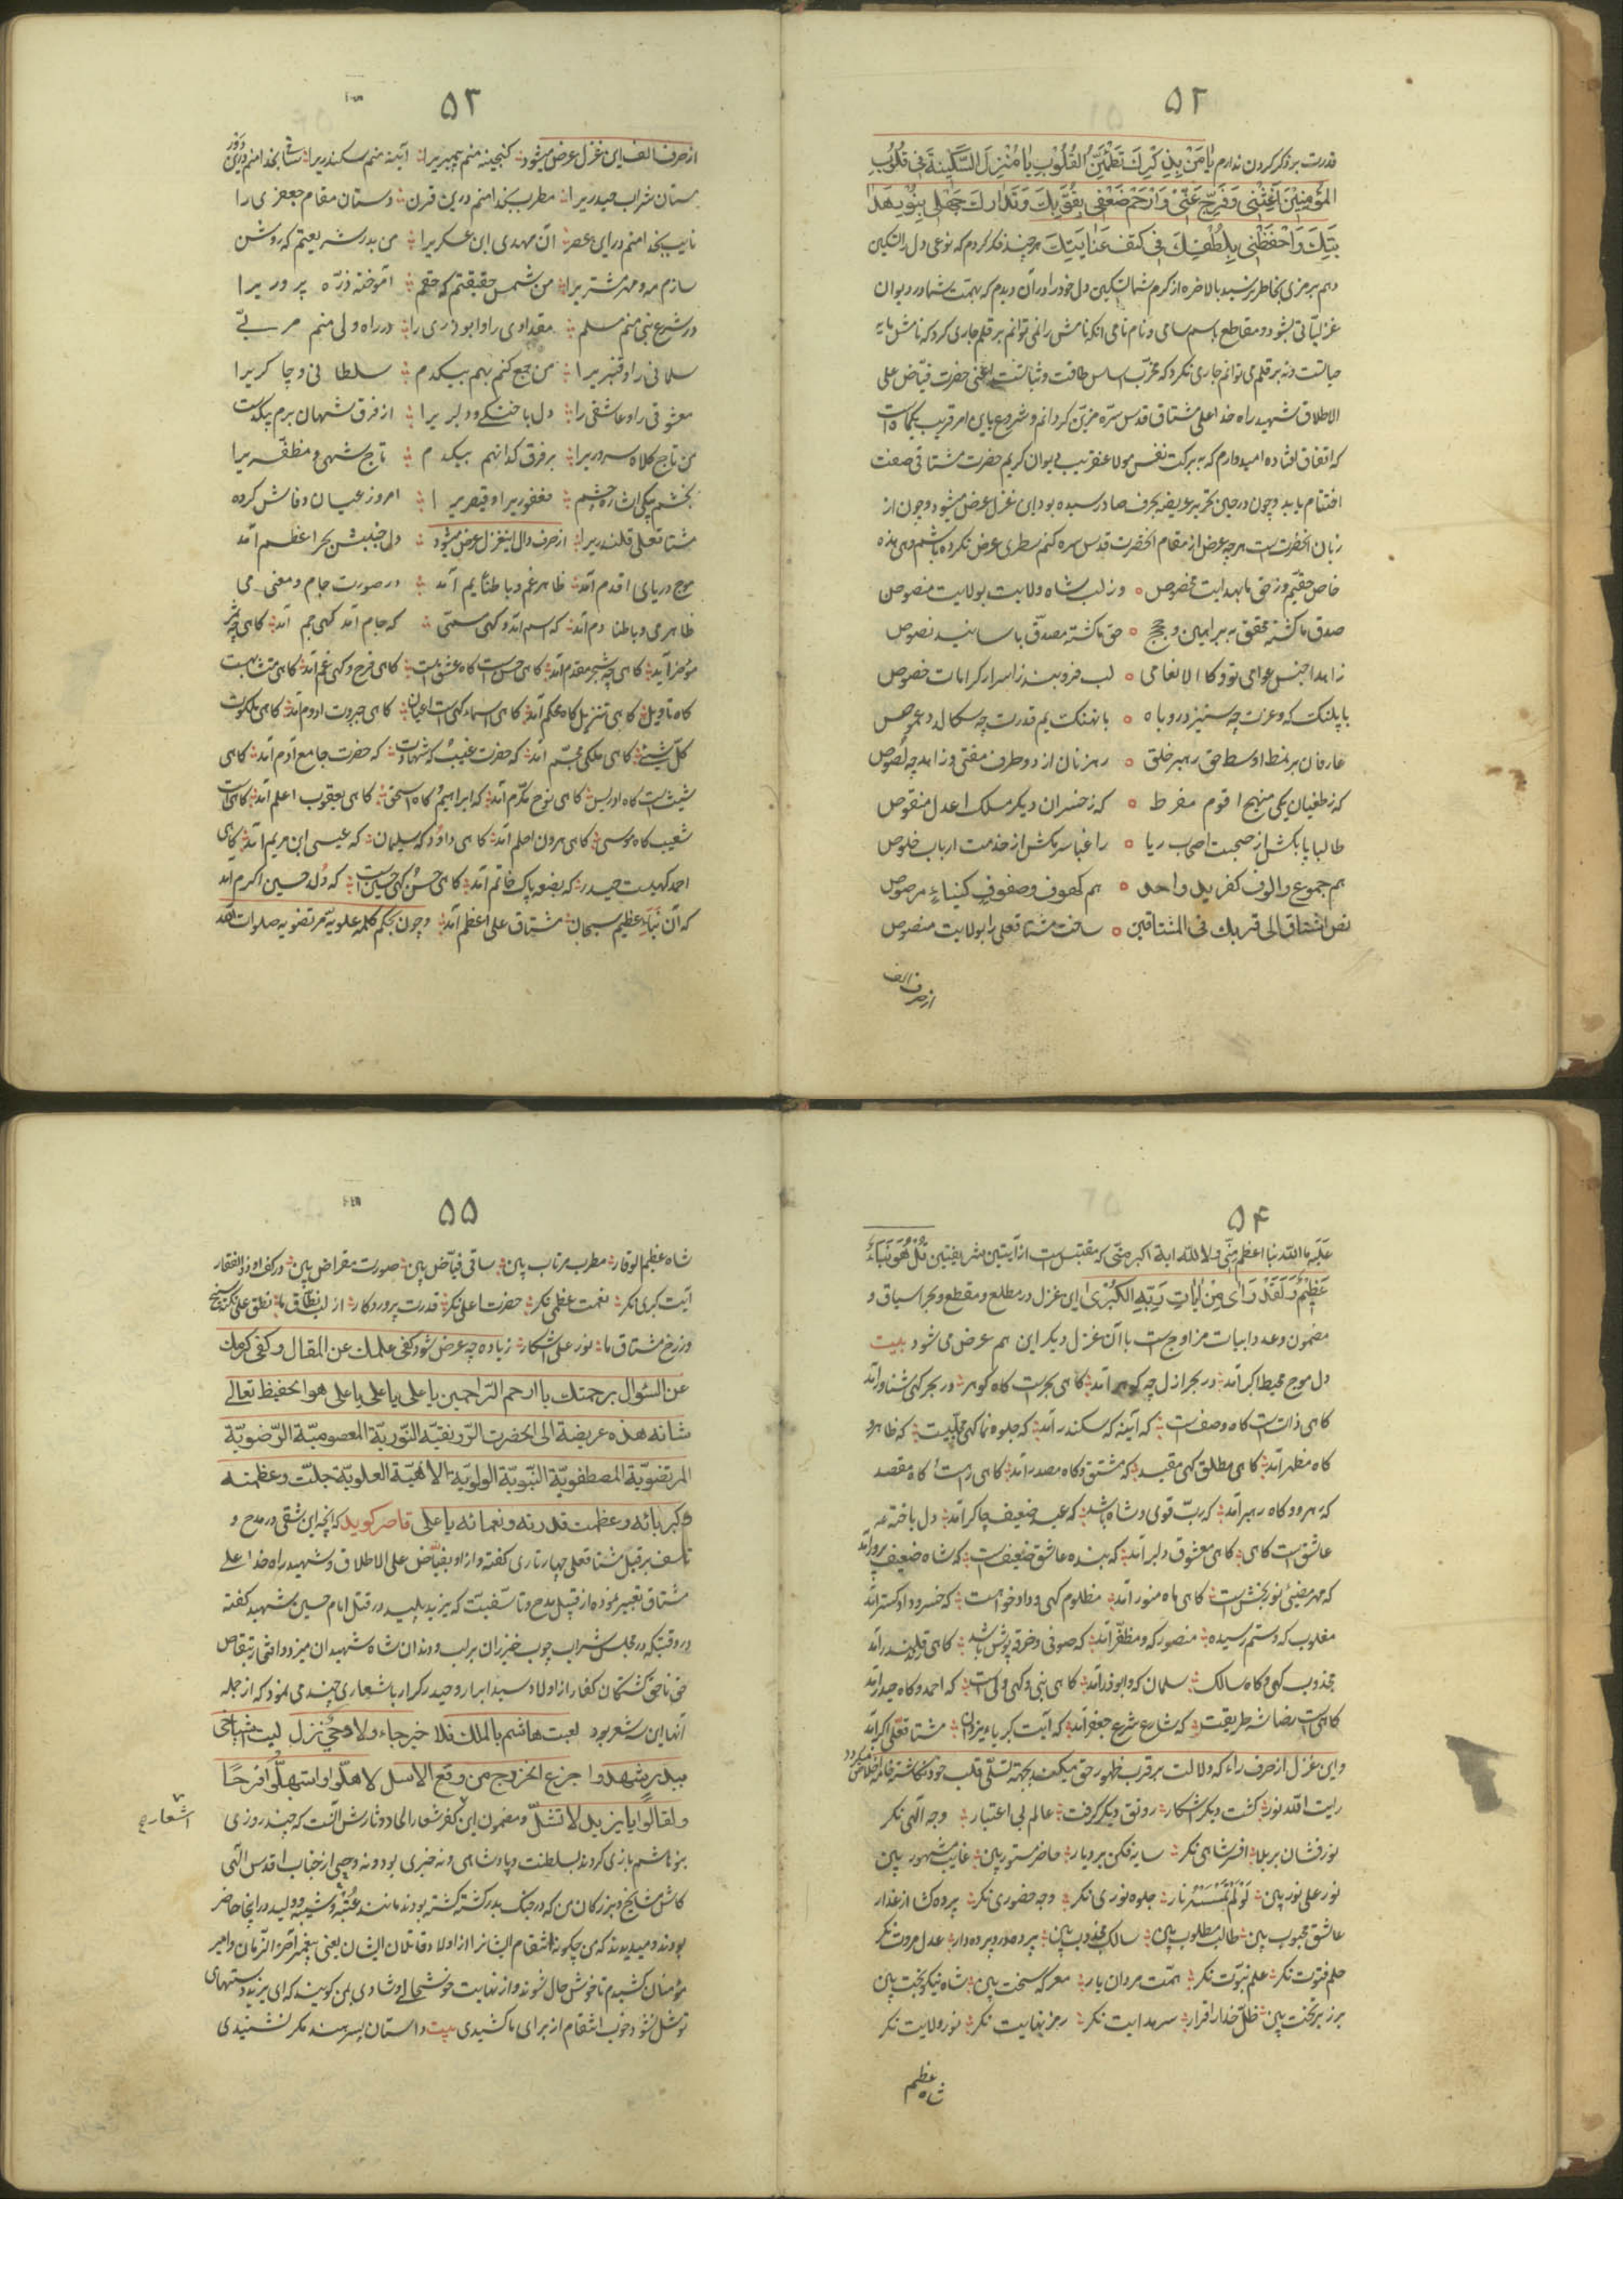 ۵۲
قدرت بر ذکر کردن ندارم یا مَنْ بِذِکْرِكَ تَطْمَئِنُّ القُلُوبِ یا مُنْزِلَ السَّکینَةَ فی قُلُوبِ
المُؤمِنینَ اَغِثْنی وَ فَرِّجْ عَنّی وَ ارْحَمْ ضَعْفی بِقُوَّتِكَ وَ تَدارَكْ جَهْلی بِنُورِ هِدا
یَتِكَ وَ احْفَظْنی بِلُطْفِكَ فی کَنَفِ عَنایَتِكَ هرچند فکر کردم که نوعی دل را تسکین
دهم برمزی بخاطر نرسید بالاخره از کرم شما تسکین دل خود را در آن دیدم که بهمت شما در دیوان
غزلیاتی بشود و مقاطع باسم سامی و نام نامی آنکه نامش را نمی توانم بر قلم جاری کرد که نامش مایه
حیاتست و نه بر قلم می توانم جاری نکرد که مخرب اساس طاقت و ثباتست اعنی حضرت فیاض علی
الاطلاق شهید راه خدا علی مشتاق قدس سره مزین گردانم و شروع باین امر قریب یکماه است
که اتفاق افتاده امیدوارم که به برکت نفس مولا عنقریب دیوان کریم حضرت مشتاقی صفت
اختتام یابد و چون در حین تحریر عریضه بحرف صاد رسیده بود این غزل عرض میشود و چون از
زبان آنحضرتست هرچه عرض از مقام آنحضرت قدس سره کنم سطری عرض نکرده باشم وهی هذه
خاص حقیم و ز حق ما بهدایت مخصوص ه وز لب شاه ولایت بولایت منصوص
صدق ما گشته محقق به براهین و حجج ه حق ما گشته مصدق باسانید نصوص
زاهدا جنس عوامی تو و کالانعامی ه لب فروبند ز اسرار کرامات خصوص
با پلنگ که و عزت چه ستیزد روباه ه با نهنگ یم قدرت چه سگالد دعموص
عارفان بر نمط اوسط حق رهبر خلق ه رهزنان از دو طرف مفتی و زاهد چه لصوص
که ز طغیان یکی منهج اقوم مفرط ه که ز خسران دیگر مسلک اعدل منقوص
طالبا پا بکش از صحبت اصحاب ریا ه راغبا سر مکش از خدمت ارباب خلوص
هم جموع والوف کفرید واحد ه هم کهوف و صفوف کبناء مرصوص
نص اشتاق الی قربك فی المشتاقین ه ساخت مشتاقعلی را بولایت منصوص
از حرف الف

۵۳
از حرف الف این غزل عرض میشود گنجینه منم پیمبریرا آئینه منم سکندریرا ساقی بخدا منم درین دور
مستان شراب حیدریرا مطرب بخدا منم درین قرن دستان مقام جعفری را
نایب بخدا منم در این عصر آن مهدی ابن عسکریرا من بدر شریعتم که روشن
سازم مه و مهر مشتریرا من شمس حقیقتم که حقم آموخته ذره پروریرا
در شرع نبی منم مسلم مقدادی را و ابوذری را در راه ولی منم مربی
سلمانی را و قنبریرا من جمع کنم بهم بیکدم سلطانی و چاکریرا
معشوقی را و عاشقی را دل باختگی و دلبریرا از فرق شهان برم بیکدست
من تاج کلاه سروریرا بر فرق گدا نهم بیکدم تاج شهی و مظفریرا
بخشم بیکی اشاره چشم فغفوریرا و قیصریرا امروز عیان و فاش کرده
مشتاقعلی قلندریرا از حرف دال اینغزل عرض میشود دل جنبش بحر اعظم آمد
موج دریای اقدم آمد ظاهر غم و باطنا یم آمد در صورت جام و معنی می
ظاهر می و باطنا دم آمد که اسم آمد و گهی مسمی که جام آمد گهی جم آمد گاهی چه
مؤخر آید گاهی چه شجر مقدم آمد گاهی حسنست گاه عشق است گاهی فرح و گهی غم آمد گاهی متشابهست
گاه تاویل گاهی تنزیل گاه محکم آمد گاهی اسماء گهست اعیان گاهی جبروت ادوم آمد گاهی ملکوت
کل شیئ گاهی ملکی مجسم آمد که حضرت غیب که شهادت که حضرت جامع آدم آمد گاهی
شیث است گاه ادریس گاهی نوح مکرم آمد که ابراهیم گاه اسحق گاهی یعقوب اعلم آمد گاهی است
شعیب گاه موسی گاهی هرون احلم آمد گاهی داود که سلیمان که عیسی ابن مریم آمد گاهی
احمد گهیست حیدر که بضعه پاک خاتم آمد گاهی حسن گهی حسین است که ولد حسین اکرم آمد
که آن نباء عظیم سبحان مشتاق علی اعظم آمد و چون بحکم کلمه علویه مرتضویه صلوات الله

۵۴
علیه ما لله نبا اعظم منی و لا لله ایة اکبر منی که مقتبس است از آیتین شریفتین قُلْ هُوَ نَبَأٌ
عَظیمٌ وَ لَقَدْ رَای مِنْ ایاتِ رَبِّهِ الکُبْری این غزل در مطلع و مقطع و بحر و سیاق و
مضمون و عدد ابیات مزاوجست با آن غزل دیگر این هم عرض می شود بیت
دل موج محیط اکبر آمد در بحر ازل چه گوهر آمد گاهی بحر است گاه گوهر در بحر گهی شناور آمد
گاهی ذات است گاه وصفست که آینه که سکندر آمد که جلوه نما گهی مجلیست که ظاهر و
گاه مظهر آمد گاهی مطلق گهی مقید که مشتق و گاه مصدر آمد گاهی رهست گاه مقصد
که رهرو و گاه رهبر آمد که رب قوی و شاه باشد که عبد ضعیف چاکر آمد دل باخته
عاشق است گاهی گاهی معشوق دلبر آمد که بنده عاشق ضعیف است که شاه ضعیف پرور آمد
که مهر مضیئ نور بخش است گاهی ماه منور آمد مظلوم گهی و داد خواهست که خسرو دادگستر آمد
مغلوب که و ستم رسیده منصور که و مظفر آمد که صوفی و خرقه پوش باشد گاهی قلندر آمد
مجذوب گهی و گاه سالک سلمان که و ابوذر آمد گاهی نبی و گهی ولی است که احمد و گاه حیدر آمد
گاهی است رضا شه طریقت که شارع شرع جعفر آمد که آیت کبریاء یزدان مشتاقعلی اکبر آمد
و این غزل از حرف راء که دلالت بر قرب ظهور حق میکند بجهته تسلی قلب خود نگاشته
رایت الله نور گشت دیگر آشکار رونق دیگر گرفت عالم بی اعتبار وجه الهی نگر
نور فشان بر ملا افسر شاهی نگر سایه فکن بر دیار حاضر مستور بین غایب مشهور بین
نور علی نور بین لَوْ لَمْ تَمْسَسْهُ نار جلوه نوری نگر وجه حضوری نگر پرده کش از عذار
عاشق محبوب بین طالب مطلوب بین سالک مجذوب بین پرده در و پرده دار عدل مروت نگر
حلم فتوت نگر علم نبوت نگر همت مردان یار معرکه سخت بین شاه نیکو بخت بین
برز بر تخت بین ظل خدا برقرار سر هدایت نگر رمز نهایت نگر نور ولایت نگر
شاه عظیم

۵۵
شاه عظیم الوقار مطرب مرتاب بین ساقی فیاض بین صورت مقراض بین در کف او ذوالفقار
آیت کبری نگر نعمت عظمی نگر حضرت اعلی نگر قدرت پروردگار از لب نطاق ما نطق علی
وز رخ مشتاق ما نور علی آشکار زیاده چه عرض شود کفی علمك عن المقال و کفی کرمك
عن السؤال برحمتك یا ارحم الراحمین یا علی یا علی یا علی هو الحفیظ تعالی
شانه هذه عریضة الی الحضرت الرونقیة النوریة المعصومیة الرضویة
المرتضویة المصطفویة النبویة الولویة الالهیة العلویة جلت وعظمته
و کبریائه و عظمت قدرته و نعمائه یا علی قاصر گوید که آنچه این شقی در مدح و
تاسف بر قتل مشتاقعلی چهار تاری گفته و از او بفیاض علی الاطلاق و شهید راه خدا علی
مشتاق تعبیر نموده از قبیل مدح و تاسفیست که یزید پلید در قتل امام حسین شهید گفته
در وقتیکه در مجلس شراب چوب خیزران بر لب و دندان شاه شهیدان میزد و افتخار بتقاص
خون ناحق کشتگان کفار از اولاد سید ابرار و حیدر کرار باشعاری چند می نمود که از جمله
آنها این شعر بود لعبت هاشم بالملك فلا خبر جاء ولا وحی نزل لیت اشیاخی
ببدر شهدوا جزع الخزرج من وقع الاسل لاهلوا و استهلوا فرحا
ولقالوا یا یزید لا تشل و مضمون این کفر شعار الحاد دثارش آنست که چند روزی
اشعار
بنو هاشم بازی کردند بسلطنت و پادشاهی و نه خبری بود و نه وحی از جناب اقدس الهی
کاش مشایخ و بزرگان من که در جنگ بدر کشته گشته بودند مانند عتبه و شیبه و ولید در اینجا حاضر
بودند و میدیدند که من چگونه انتقام ایشانرا از اولاد قاتلان ایشان یعنی پیغمبر آخر الزمان و امیر
مؤمنان کشیدم تا خوش حال شوند و از نهایت خوشحالی و شادی بمن گویند که ای یزید دستهای
تو شل نشود خوب انتقام از برای ما کشیدی بیت داستان پسر هند مگر نشنیدی